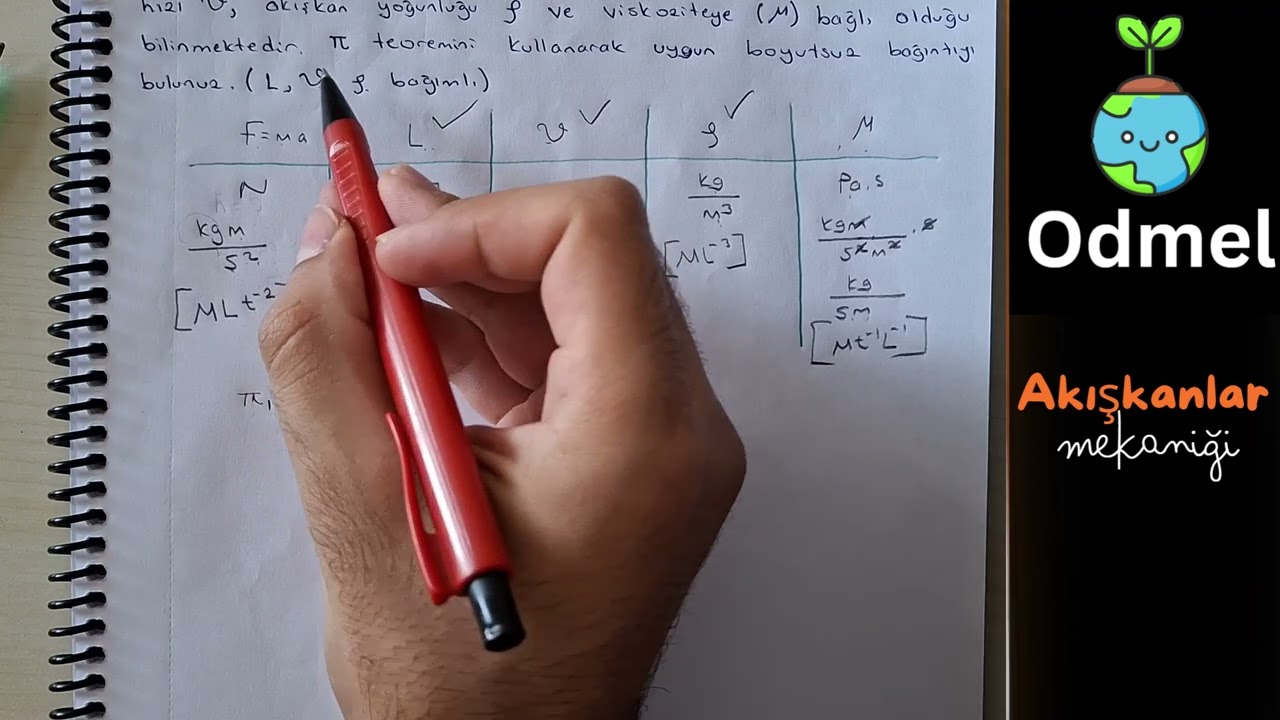 hızı ϑ, akışkan yoğunluğu ρ ve viskoziteye (μ) bağlı olduğu
bilinmektedir. π teoremini kullanarak uygun boyutsuz bağıntıyı
bulunuz. (L, ϑ ρ bağımlı)
F=ma L ✓ ϑ ✓ ρ ✓ μ
N kg/m³ Pa.s
kgm/s² [ML⁻³] kgm/s²m² . s
[MLt⁻² kg/sm
[Mt⁻¹L⁻¹]
π₁
Odmel
Akışkanlar
mekaniği